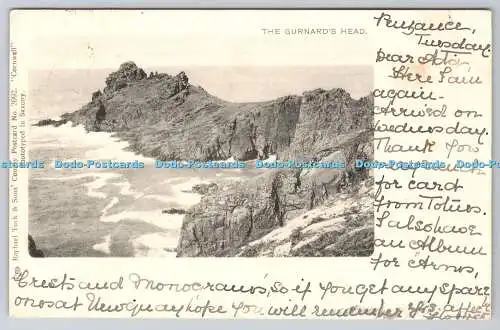 THE GURNARD'S HEAD.
Raphael Tuck & Sons' County Postcard No. 2092. "Cornwall"
Phototyped in Saxony.
Penzance,
Tuesday
Dear Ada
Here I am
again -
Arrived on
Wednesday.
Thank You
for card
from Totnes.
I also have
an Album
for "Arms,
Crests and Monocrams, so if you get any spare
ones at Newquay hope You will remember
www.Dodo-Postcards.com Dodo-Postcards Dodo-Postcards Dodo-Postcards Dodo-Postcards